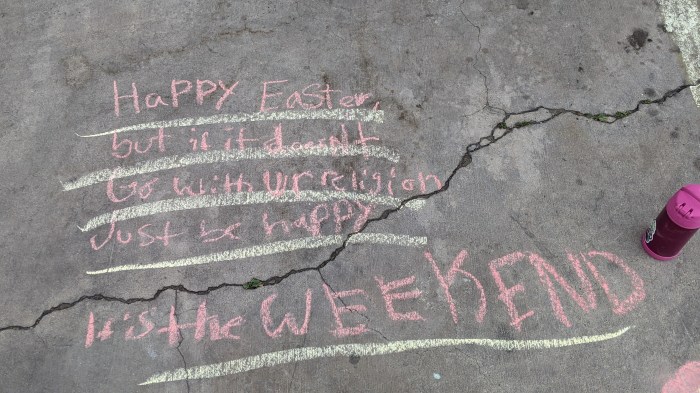 HaPPY Easter,
but if it doesnt
Go with Ur religion
Just be happy
It is the WEEKEND